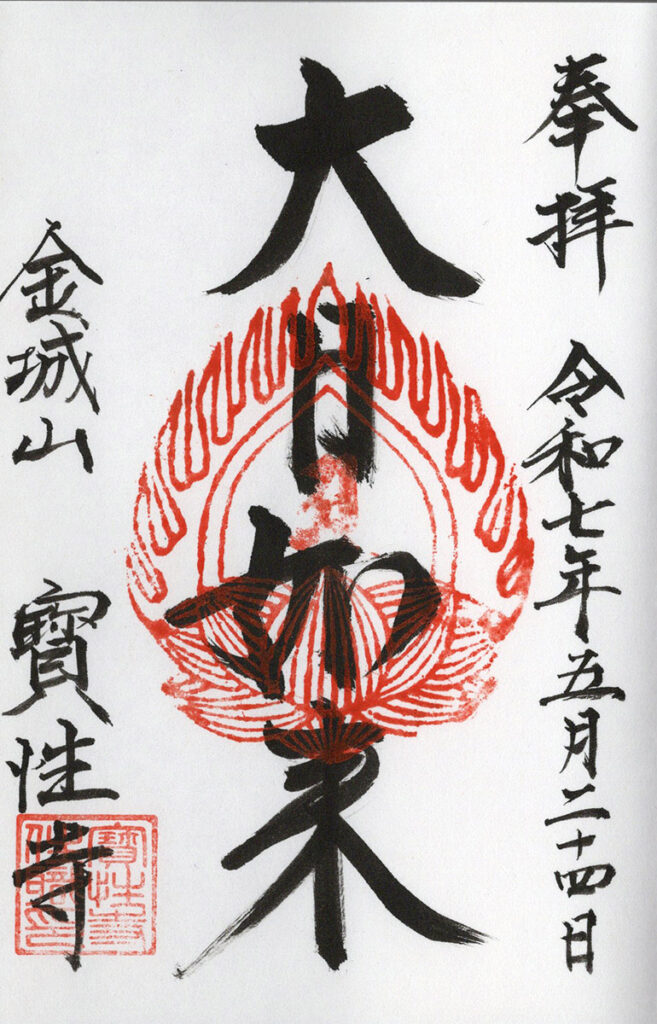 奉拝 令和七年五月二十四日
大日如来
金城山 寳性寺